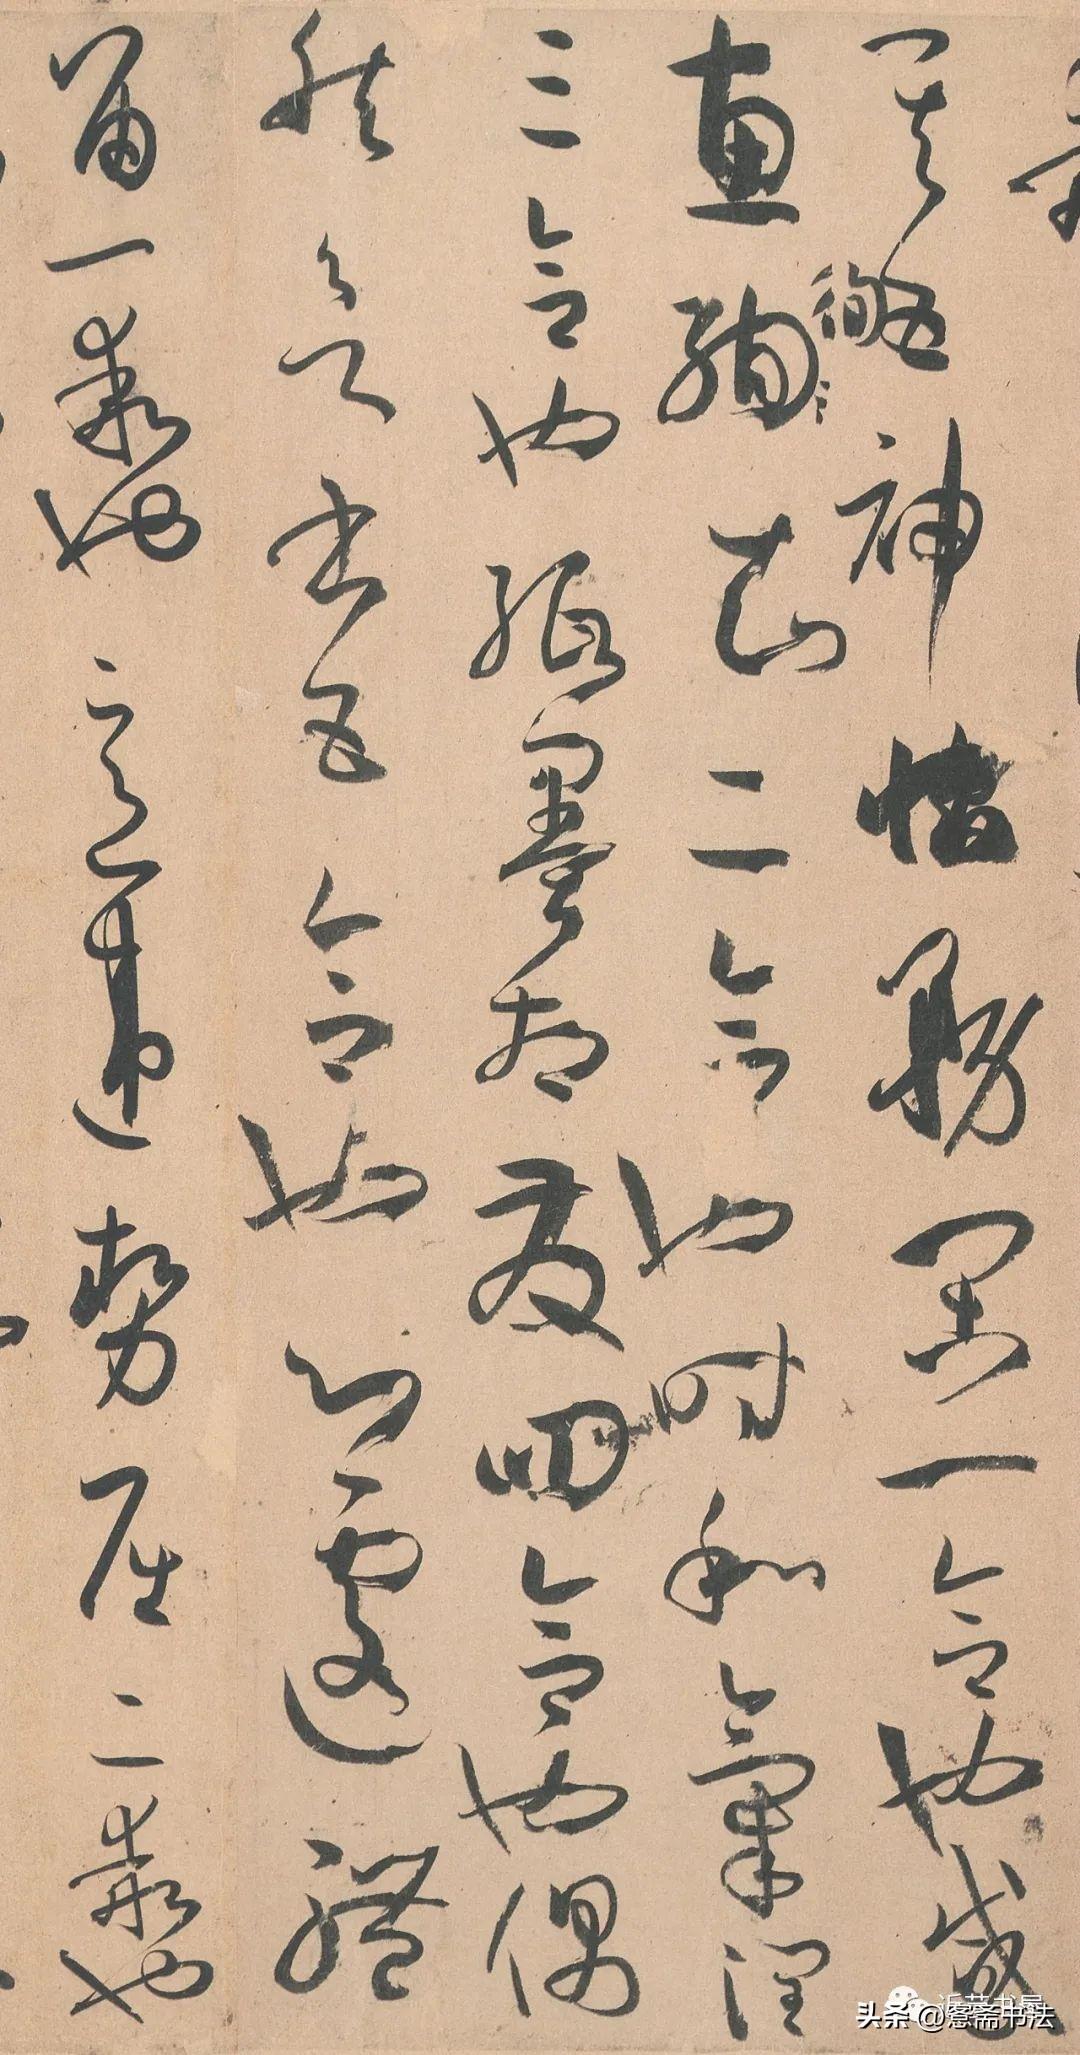 其略 神怡務閑一合也感
惠徇知二合也時和氣潤
三合也紙墨相發四合也偶
然欲書五合也心遽體
留一乖也意違勢屈二乖也
头条@惹斋书法